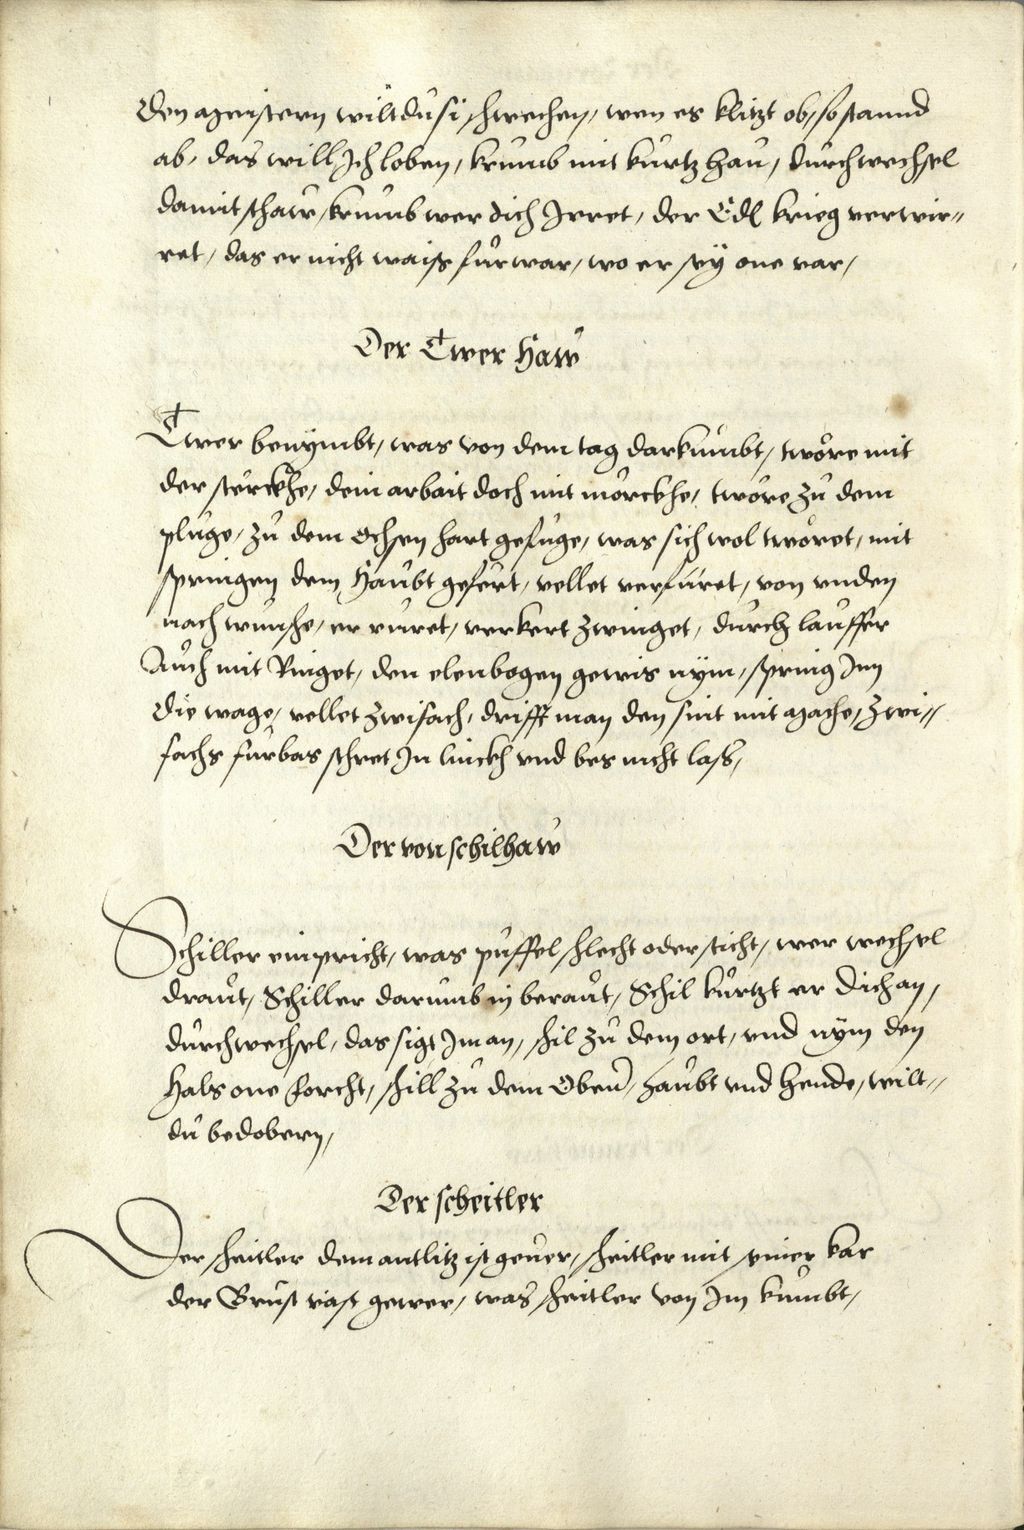 den maistern wilt du si schwechen, wen es klitzt ob, so stannd
ab, das will Ich loben, krumb mit kurtz hau, durchwechsel
damit schaw, krumb wer dich Irret, der Edl krieg verwir-
ret, das er nicht waiss fur war, wo er sey one var,
Der Twer Haw
Twer benymbt, was von dem tag darkumbt, twöre mit
der sterckhe, dein arbait doch mit mörckhe, twöre zu dem
pluge, zu dem Ochsen hart gefuge, was sich wol twöret, mit
springen dem Haubt gefert, vellet verfüret, von vnden
nach wunsche, er ruret, verkert zwinget, durch lauffer
Auch mit Ringet, den elenbogen gewis nÿm, spring Im
die wage, vellet zwifach, drifft man den snit mit mache, zwi-
fachs furbas schret In linckh vnd bes nicht lass,
Der von schilhaw
Schiller einpricht, was puffel schlecht oder sticht, wer wechsel
draut, Schiller darumb in beraut, Schil kurtzt er dich an,
durchwechsel, das sigt Im an, schil zu dem ort, vnd nÿm den
Hals one forcht, schill zu dem Obern, haubt vnd hende, wilt-
du bedobern,
Der scheitler
Der scheitler dem antlitz ist gever, scheitler mit seiner kar
der Brust vast gewer, was scheitler von Im kumbt,